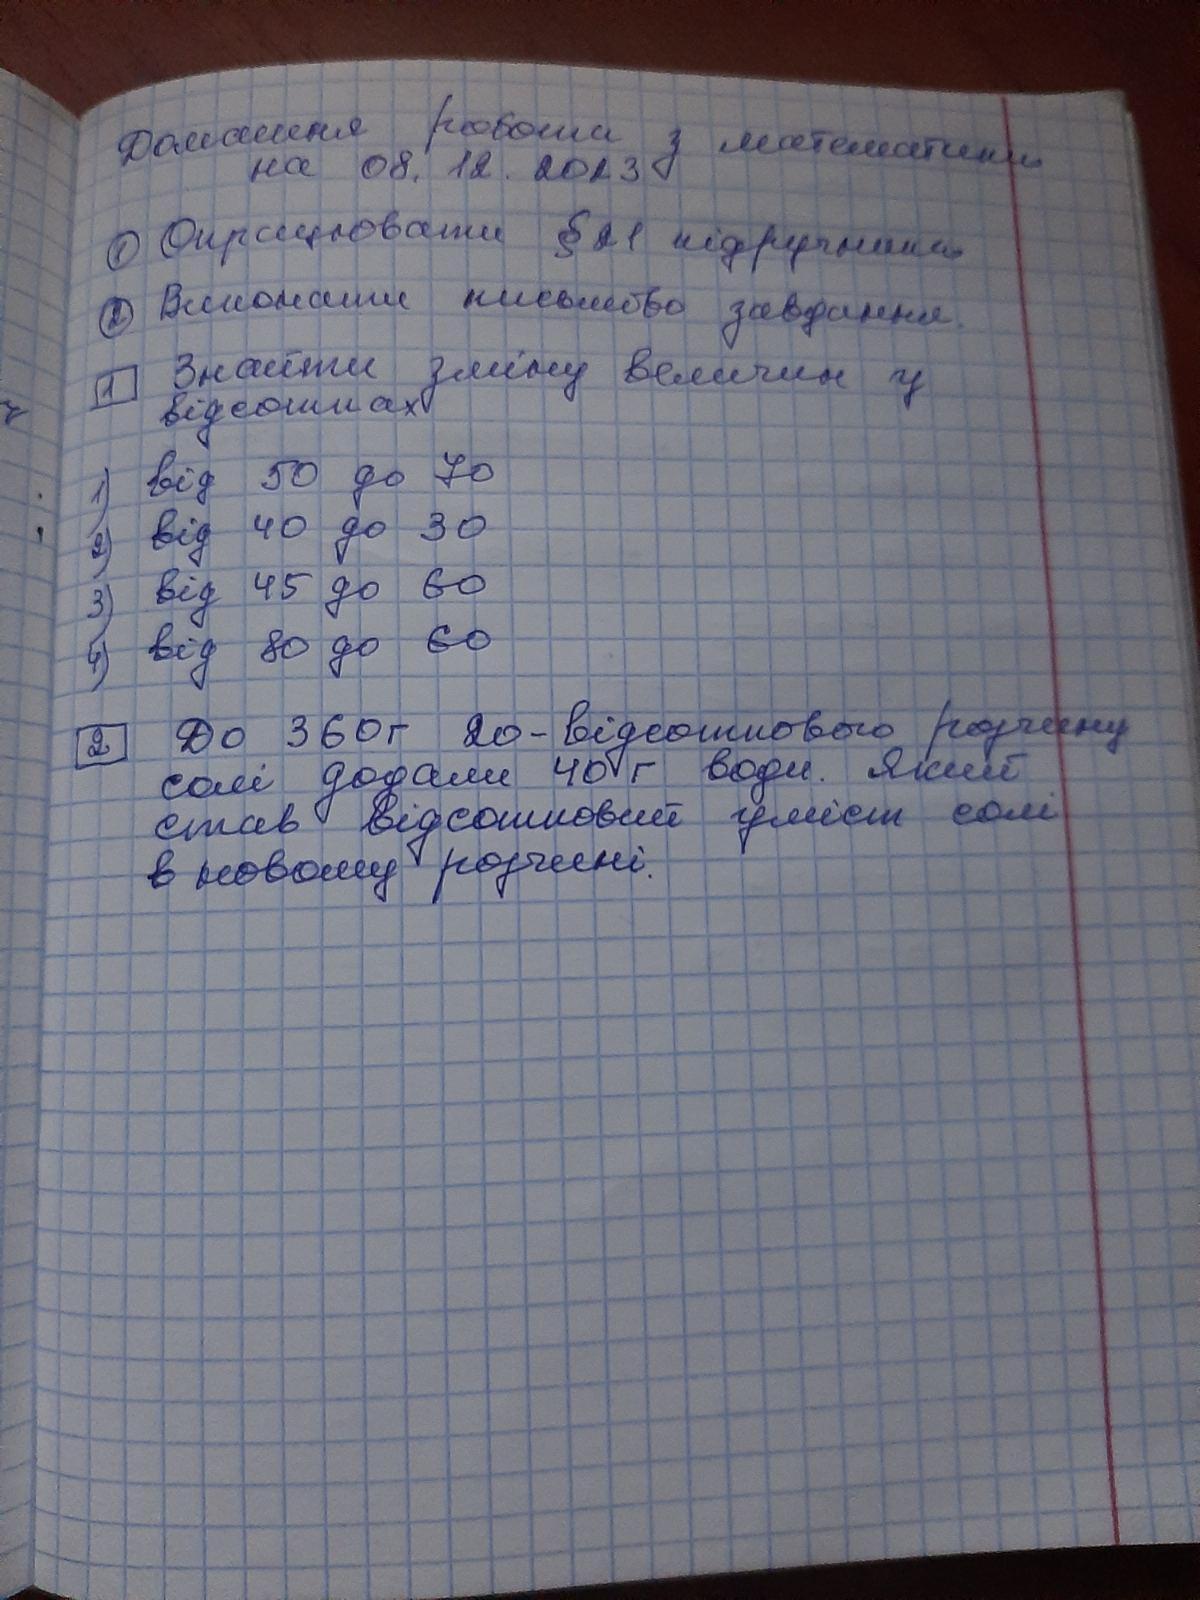 Домашня робота з математики
на 08.12.2023
① Опрацювати §21 підручника
② Виконати письмово завдання.
1 Знайти зміну величин у
відсотках
1) від 50 до 70
2) від 40 до 30
3) від 45 до 60
4) від 80 до 60
2 До 360г 20-відсоткового розчину
солі додали 40 г води. Який
став відсотковий уміст солі
в новому розчині.